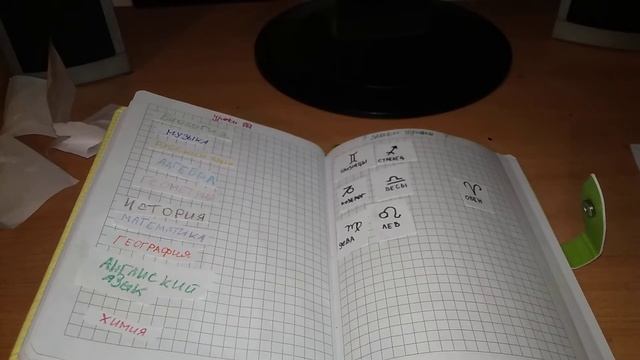 уроки
БИОЛОГИЯ
МУЗЫКА
АЛГЕБРА
ГЕОМЕТРИЯ
ИСТОРИЯ
МАТЕМАТИКА
ГЕОГРАФИЯ
АНГЛИСКИЙ
ЯЗЫК
ХИМИЯ
знаки
♊ ♐
БЛИЗНЕЦЫ СТРЕЛЕЦ
♑ ♎ ♈
КОЗЕРОГ ВЕСЫ ОВЕН
♍ ♌
ДЕВА ЛЕВ